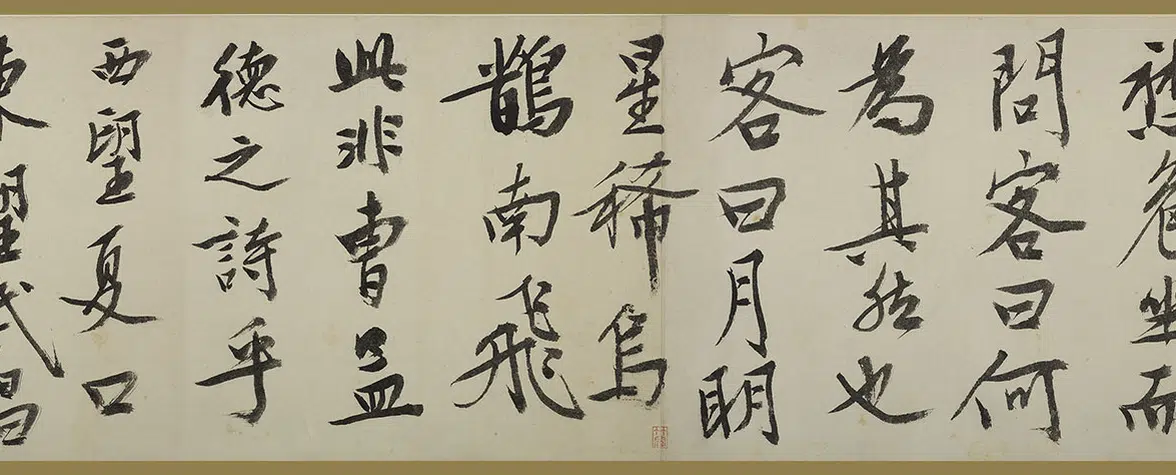 愁危坐而
問客曰何
為其然也
客曰月明
星稀烏
鵲南飛
此非曹孟
德之詩乎
西望夏口
東望武昌